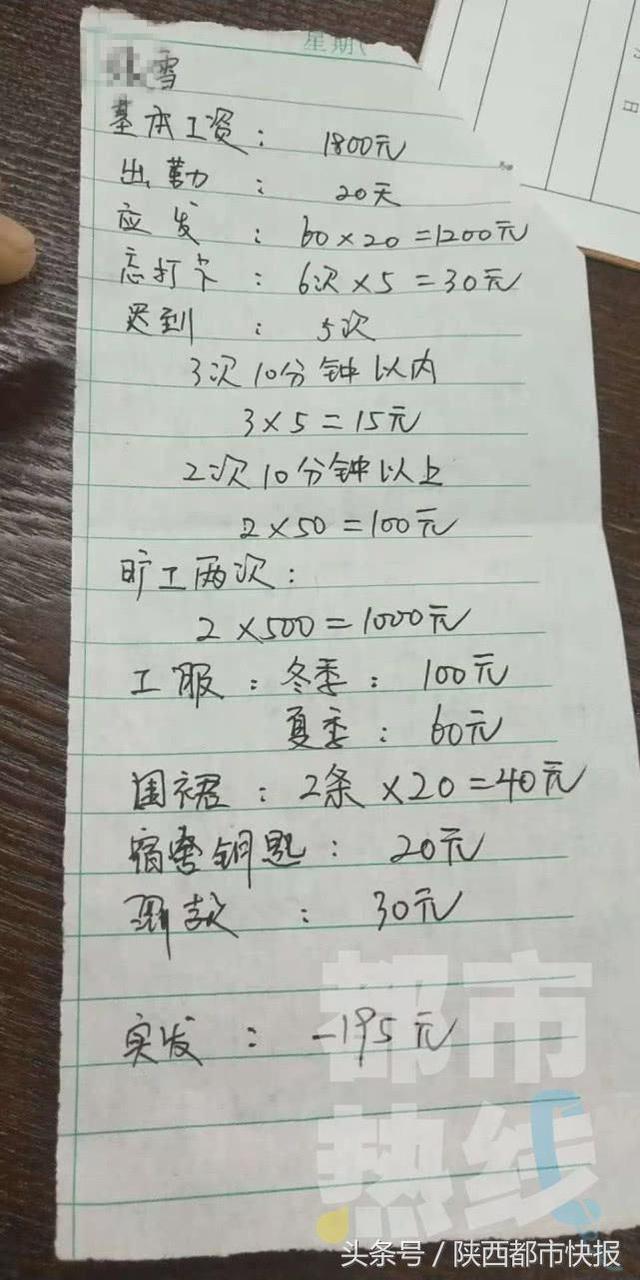 星期(
雪
基本工资： 1800元
出勤： 20天
应发： 60×20=1200元
忘打卡： 6次×5=30元
迟到： 5次
3次10分钟以内
3×5=15元
2次10分钟以上
2×50=100元
旷工两次：
2×500=1000元
工服：冬季： 100元
夏季： 60元
围裙： 2条×20=40元
宿舍钥匙： 20元
罚款： 30元
实发： -195元
日
都市
热线
头条号/陕西都市快报